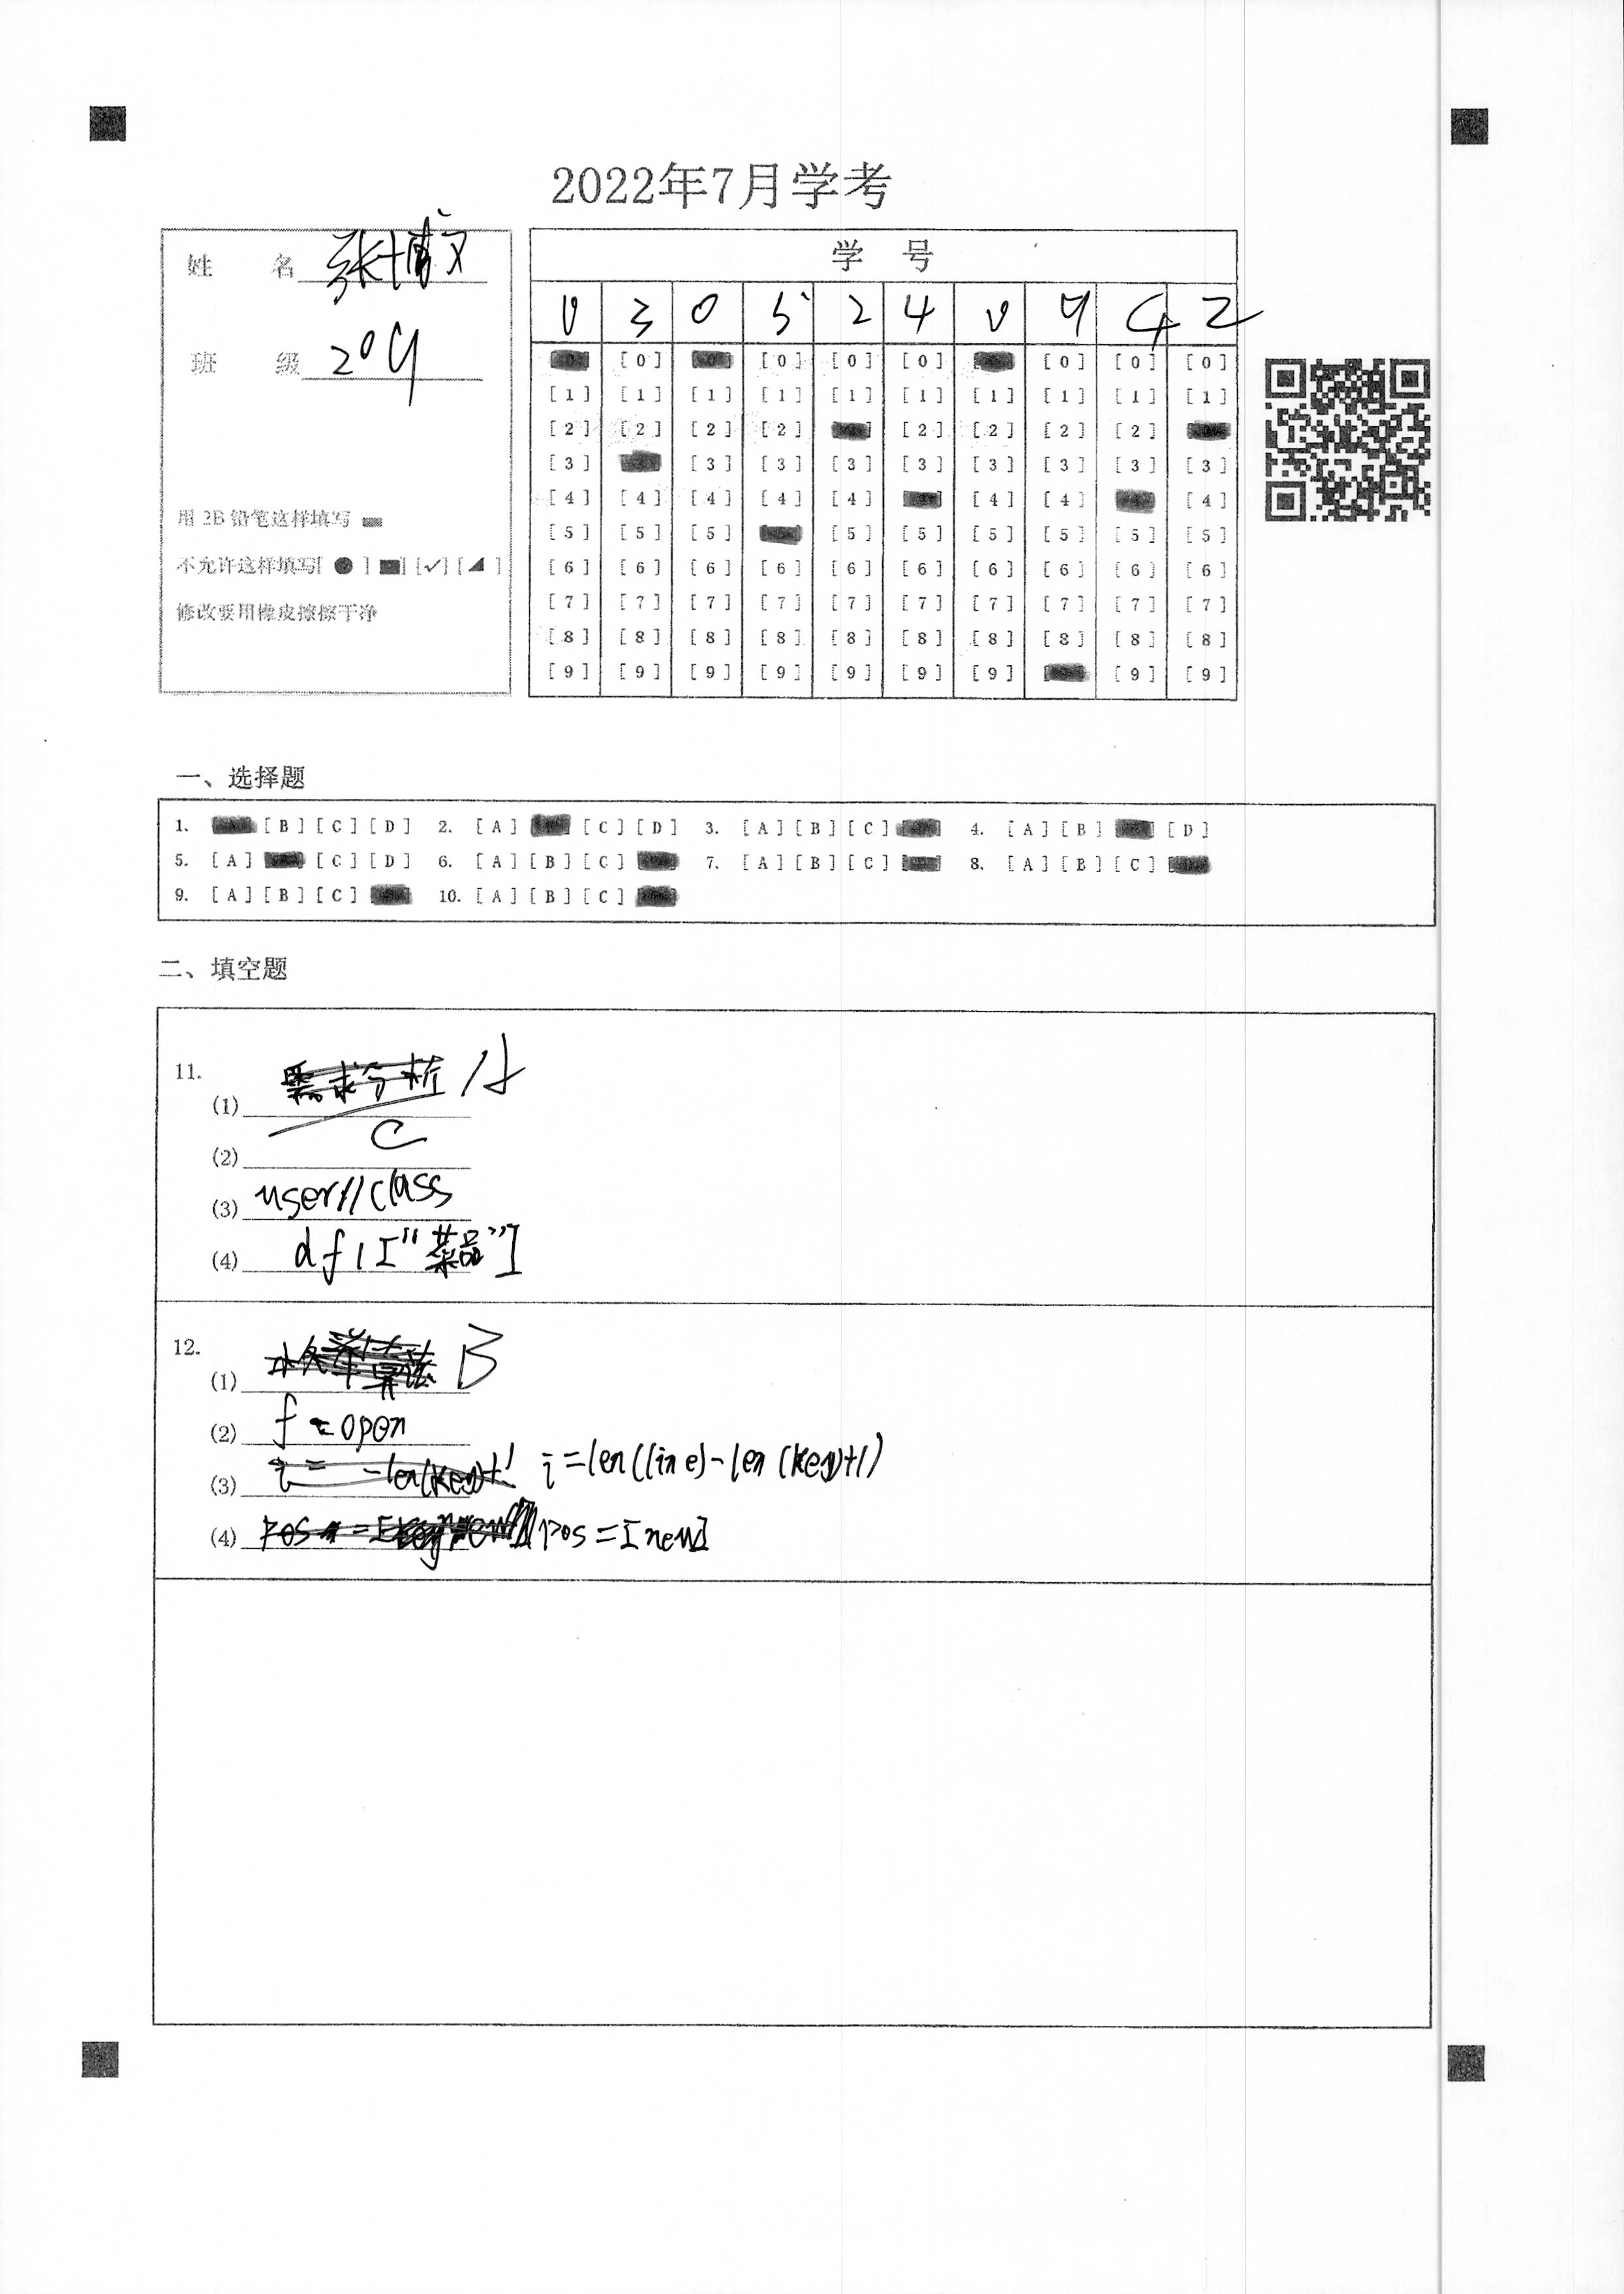 2022年7月学考
姓 名 张博文
班 级 209
用 2B 铅笔这样填写
不允许这样填写[ ● ] [■] [✓] [◢ ]
修改要用橡皮擦擦干净
学 号
0 3 0 5 2 4 0 9 4 2
[0] [0] [0] [0] [0] [0] [0]
[1] [1] [1] [1] [1] [1] [1] [1] [1] [1]
[2] [2] [2] [2] [2] [2] [2] [2]
[3] [3] [3] [3] [3] [3] [3] [3] [3]
[4] [4] [4] [4] [4] [4] [4] [4]
[5] [5] [5] [5] [5] [5] [5] [5] [5]
[6] [6] [6] [6] [6] [6] [6] [6] [6] [6]
[7] [7] [7] [7] [7] [7] [7] [7] [7] [7]
[8] [8] [8] [8] [8] [8] [8] [8] [8] [8]
[9] [9] [9] [9] [9] [9] [9] [9] [9]
一、选择题
1. [B] [C] [D] 2. [A] [C] [D] 3. [A] [B] [C] 4. [A] [B] [D]
5. [A] [C] [D] 6. [A] [B] [C] 7. [A] [B] [C] 8. [A] [B] [C]
9. [A] [B] [C] 10. [A] [B] [C]
二、填空题
11.
(1) 需求分析 /A
(2) C
(3) user//class
(4) df1["菜品"]
12.
(1) B
(2) f=open
(3) i= -len(key)+1 i=len(line)-len(key)+1)
(4) pos=[new]